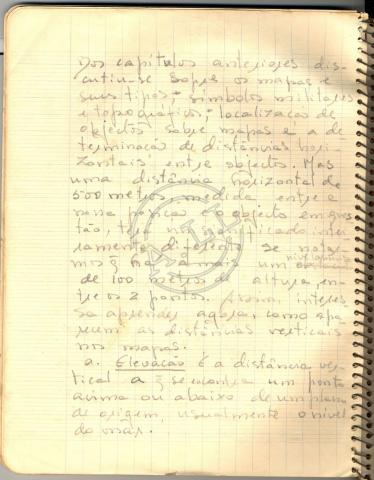 Dos capítulos anteriores dis-
cutiu-se sobre os mapas e
seus tipos; símbolos militares
e topográficos; localização de
objectos sobre mapas e a de
terminação de distâncias hori-
zontais entre objectos. Mas
uma distância horizontal de
500 metros medida entre a
nossa posição e o objecto em ques
tão, tem um significado intei
ramente diferente se notar-
mos q̃ há a mais um
de 100 metros de altura, en-
tre os 2 pontos. Assim, interes-
sa aprender agora, como apa-
recem as distâncias verticais
nos mapas.
a. Elevação é a distância ver-
tical a q̃ se encontra um ponto
acima ou abaixo de um plano
de origem, usualmente o nível
do mar.